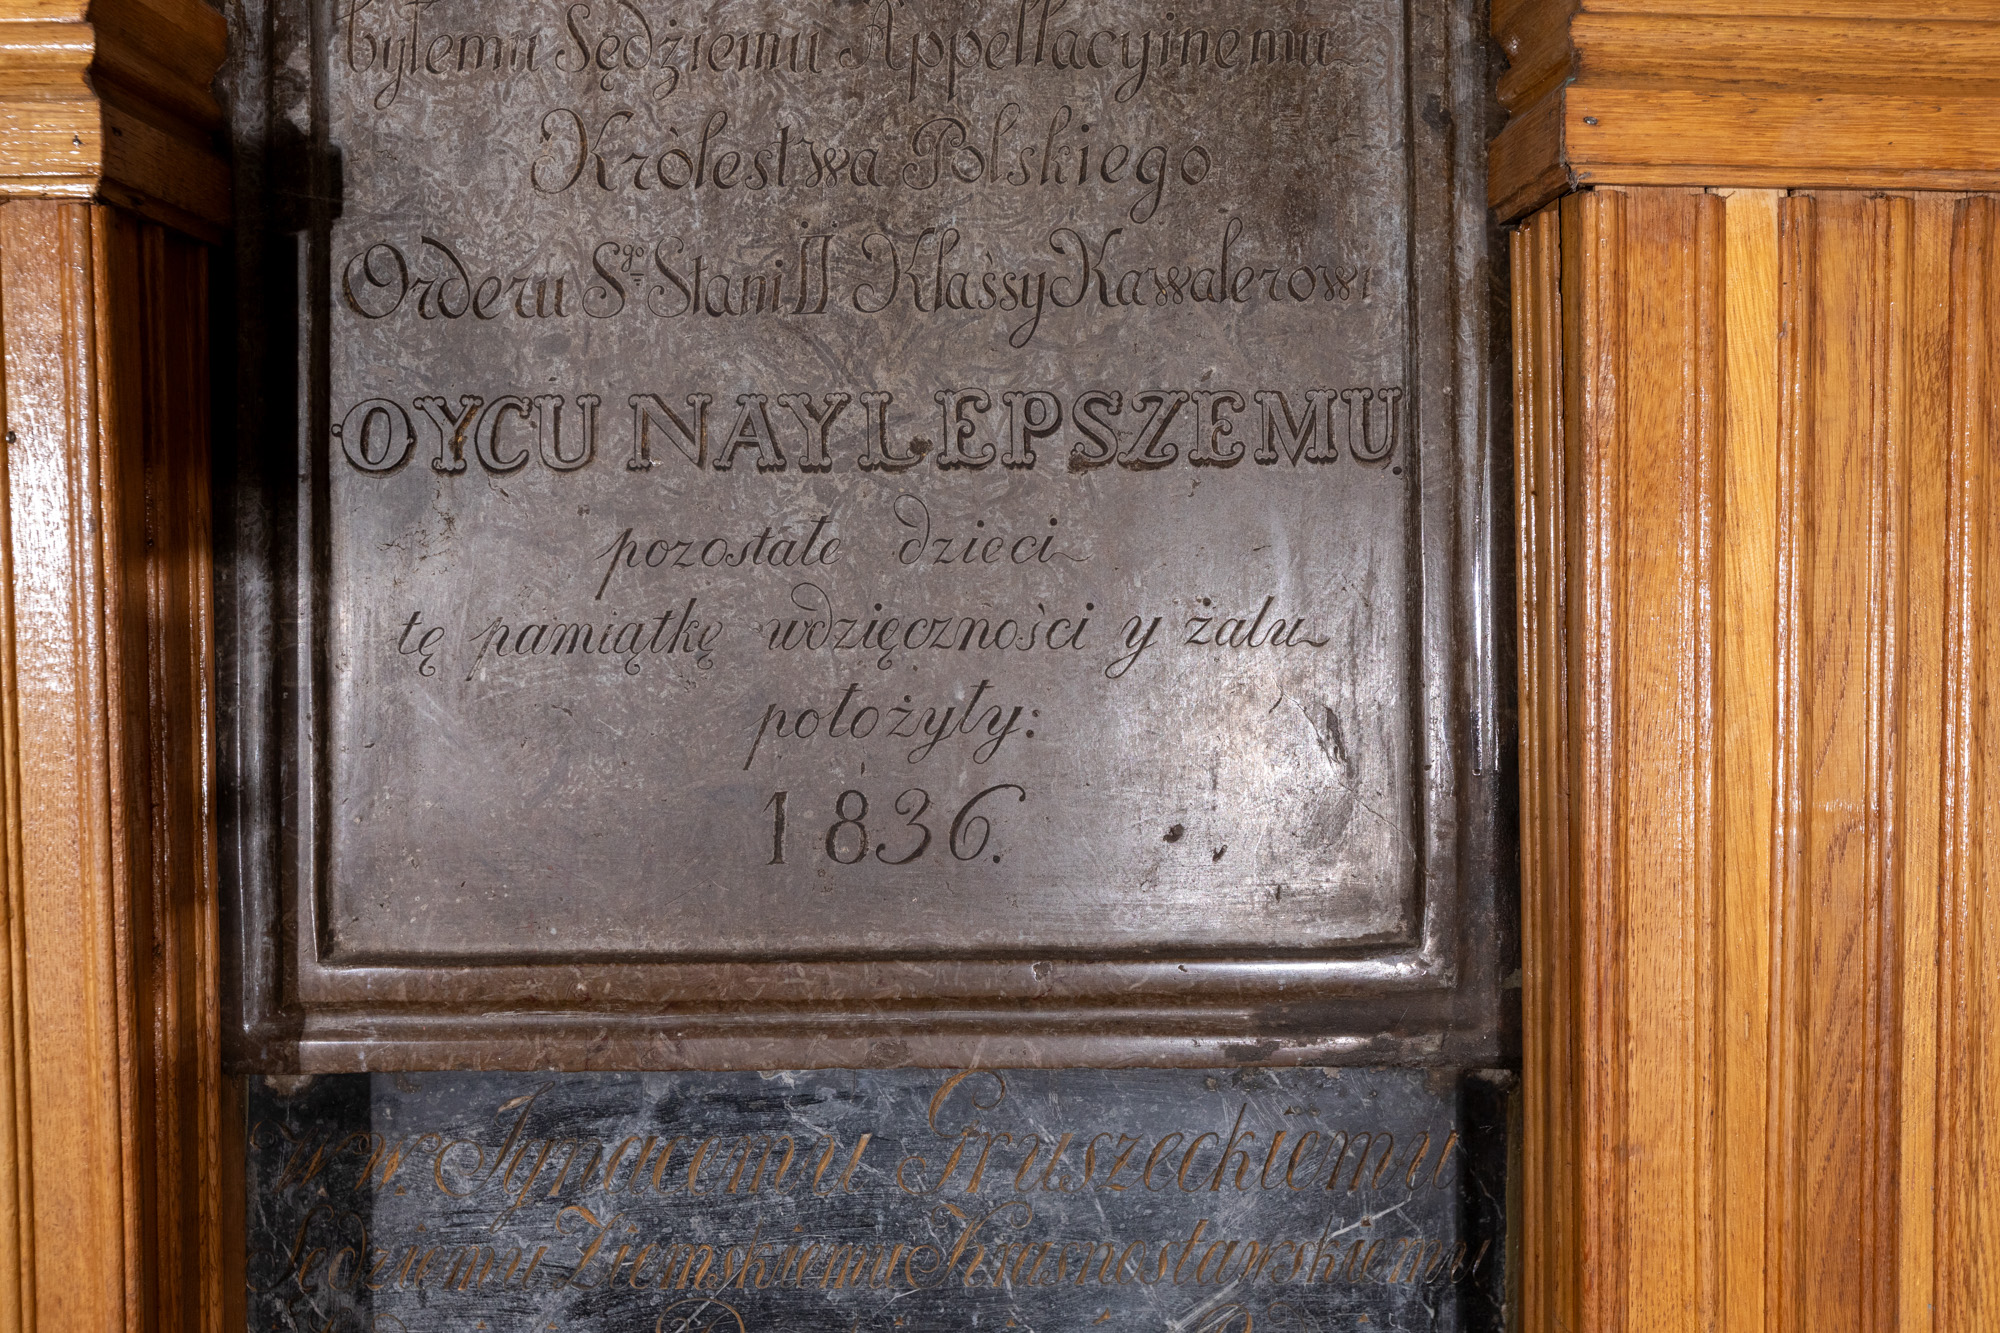 byłemu Sędziemu Appellacyinemu
Królestwa Polskiego
Orderu Sgo Stani II Klassy Kawalerowi
OYCU NAYLEPSZEMU.
pozostałe dzieci
tę pamiątkę wdzięczności y żalu
położyły:
1836.
W W. Ignacemu Gruszeckiemu
Sędziemu Ziemskiemu Krasnostawskiemu